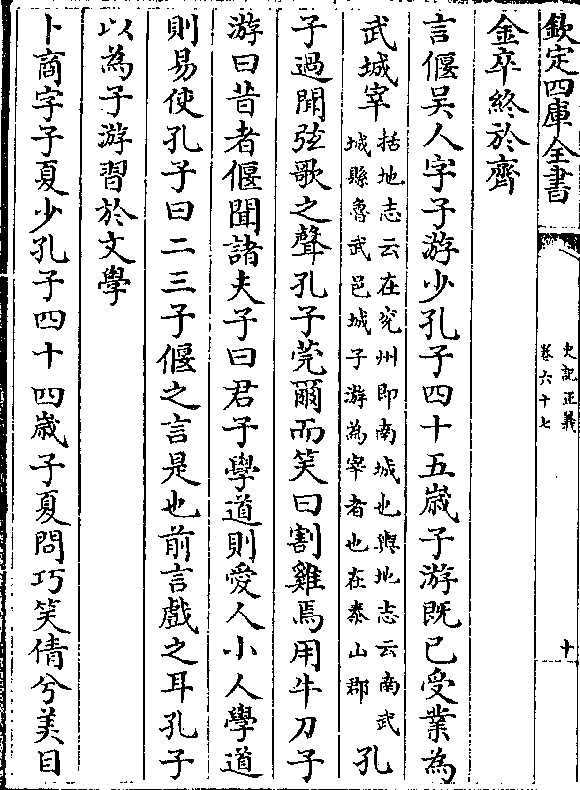 欽定四庫全書
史記正義
卷六十七
十
金卒終於齊
言偃吳人字子游少孔子四十五歲子游既已受業為
武城宰括地志云在兖州即南城也輿地志云南武城縣魯武邑城子游為宰者也在泰山郡孔
子過聞弦歌之聲孔子莞爾而笑曰割雞焉用牛刀子
游曰昔者偃聞諸夫子曰君子學道則愛人小人學道
則易使孔子曰二三子偃之言是也前言戲之耳孔子
以為子游習於文學
卜商字子夏少孔子四十四歲子夏問巧笑倩兮美目